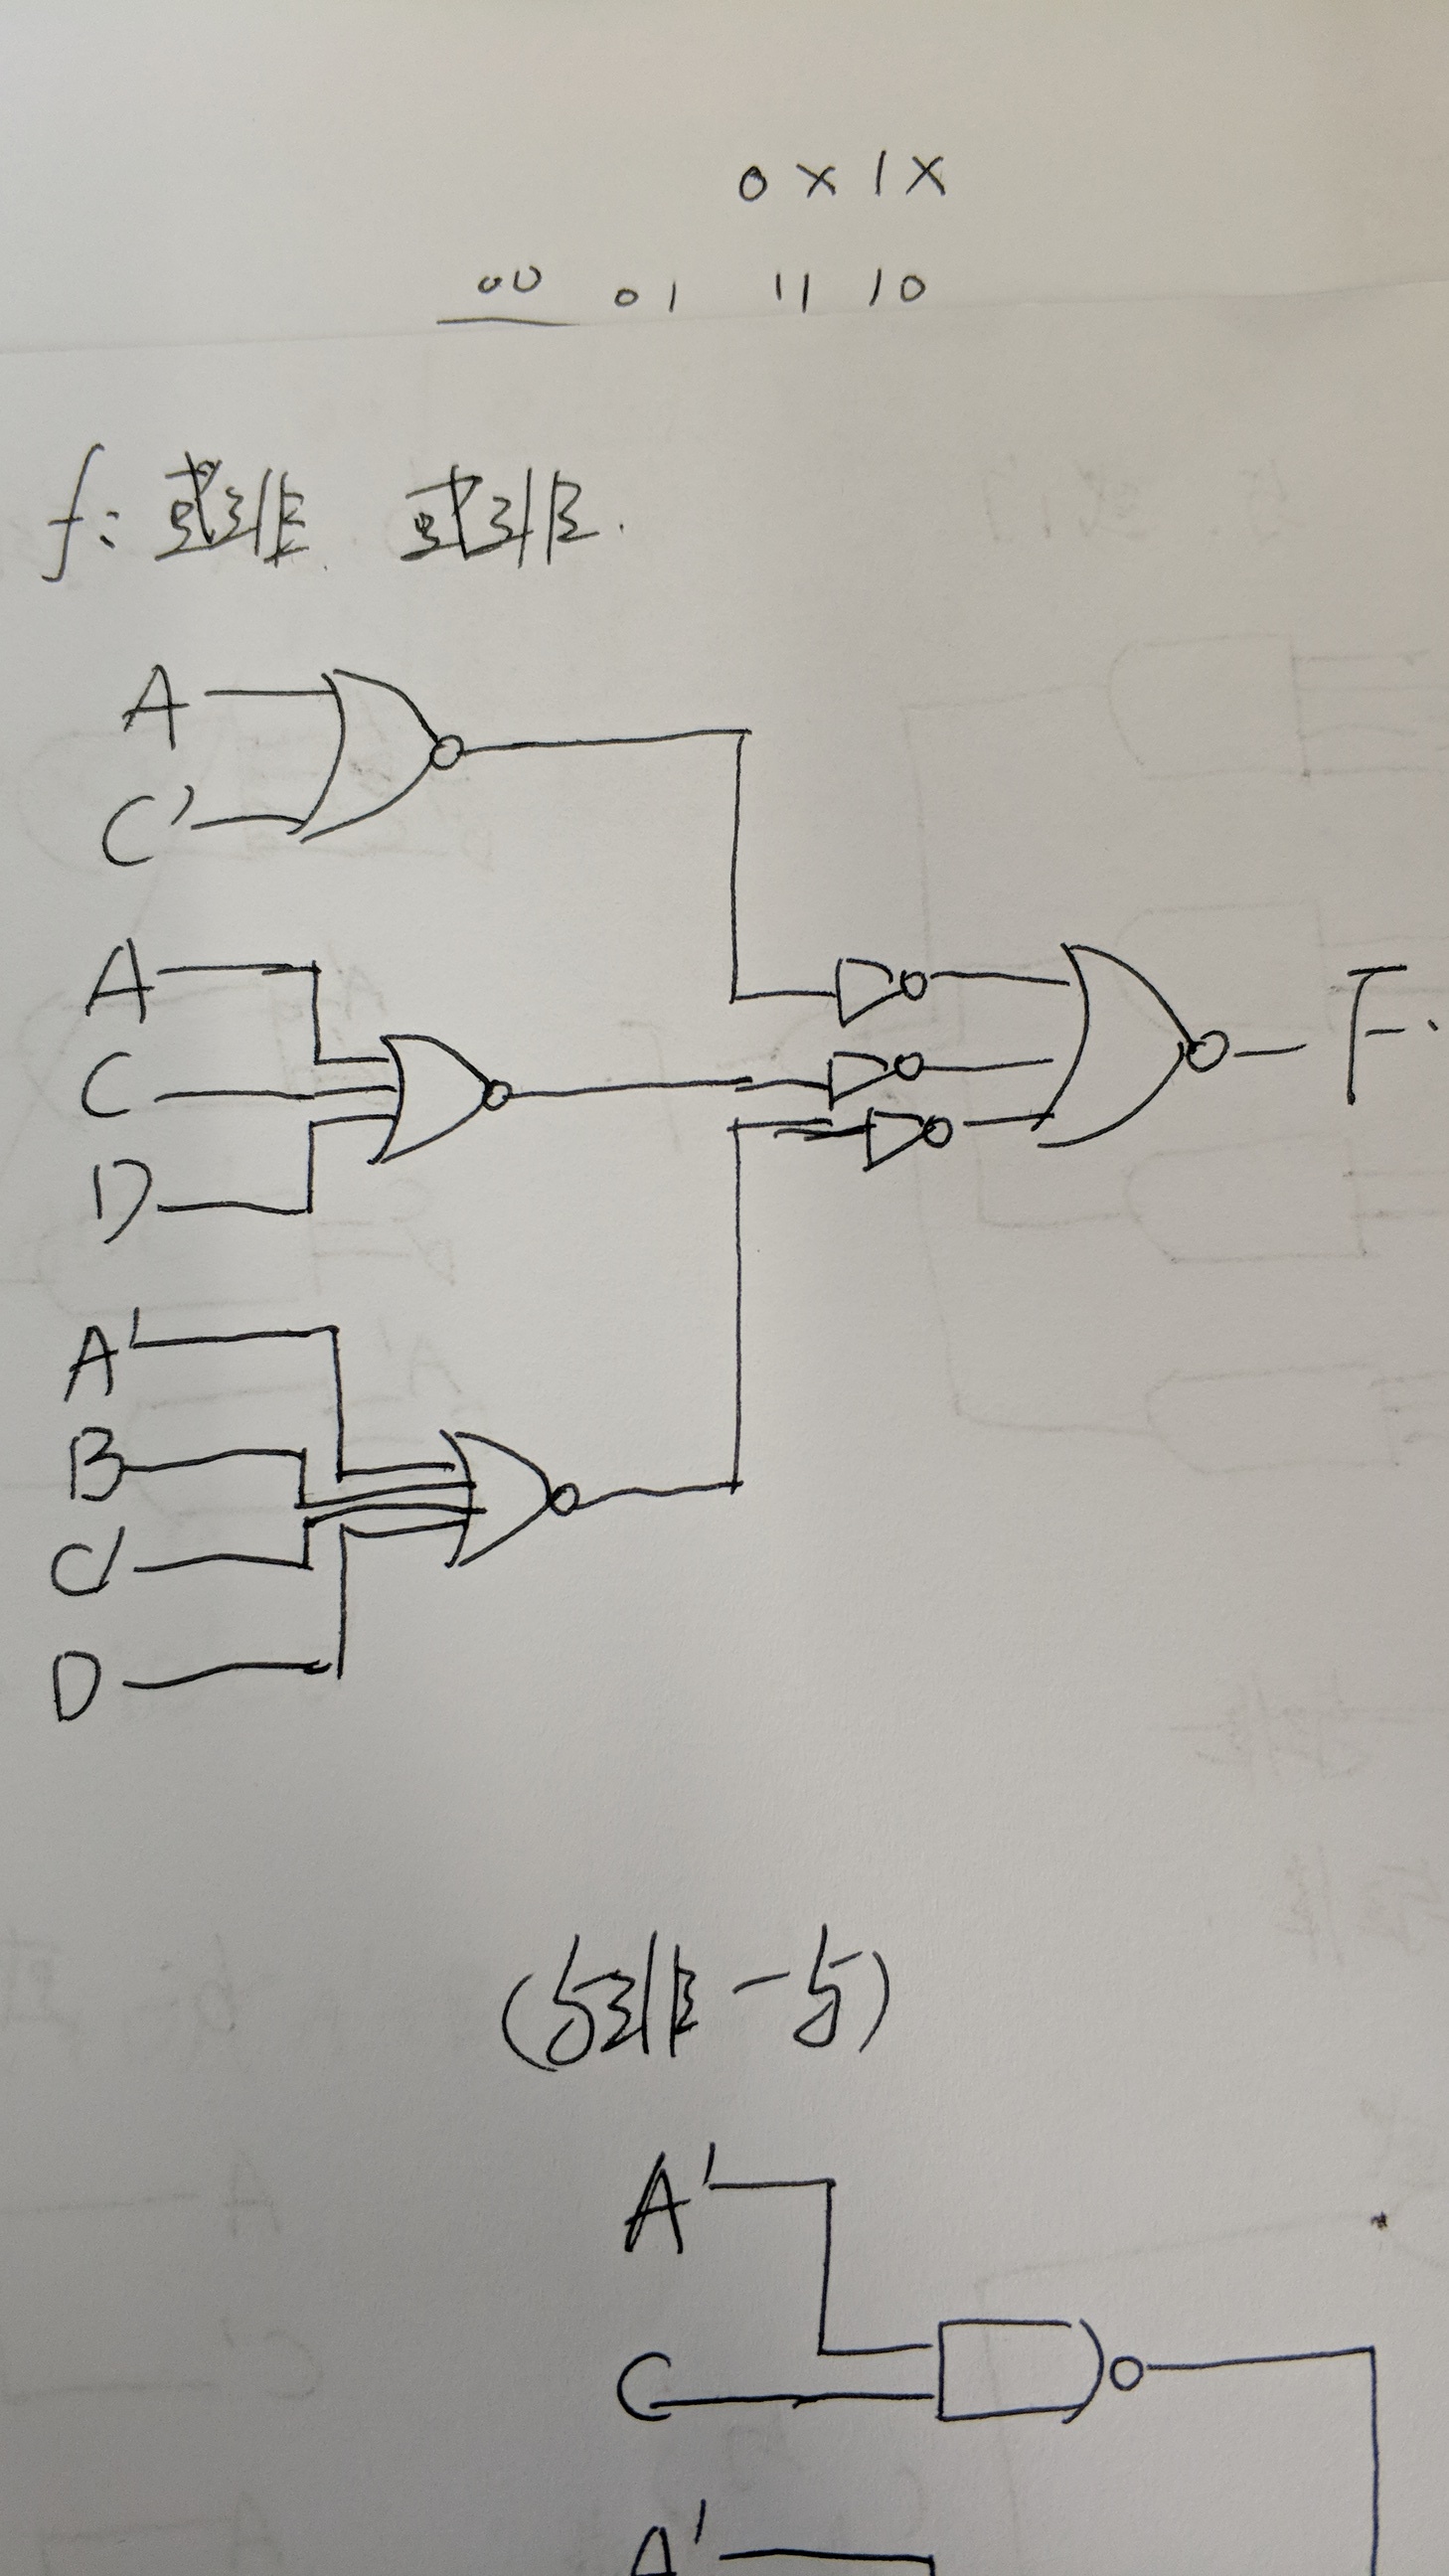 0 x 1 x
00 01 11 10
f: 或非 或非.
A
C'
A
C
D
F.
A'
B
C'
D
(与非-与)
A'
C
A'